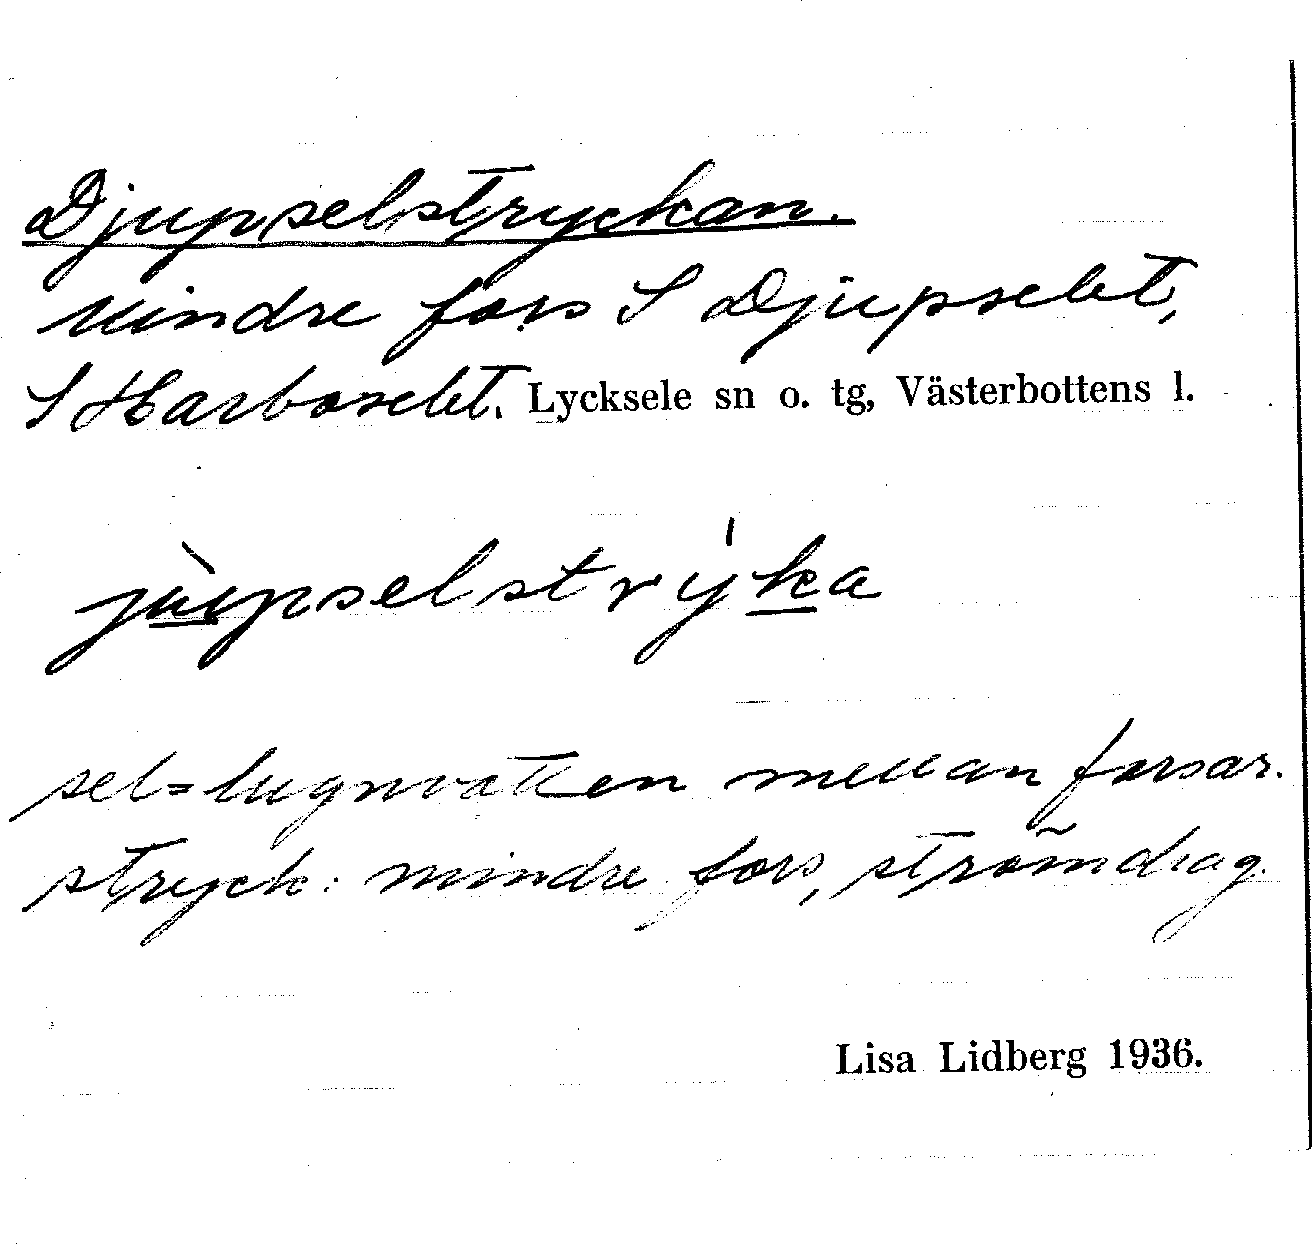 Djupselstryckan.
Mindre fors S Djupselet,
S Harboselet. Lycksele sn o. tg, Västerbottens l.
jùupselstrýka
sel = lugnvatten mellan forsar.
stryck: mindre fors, strömdrag.
Lisa Lidberg 1936.